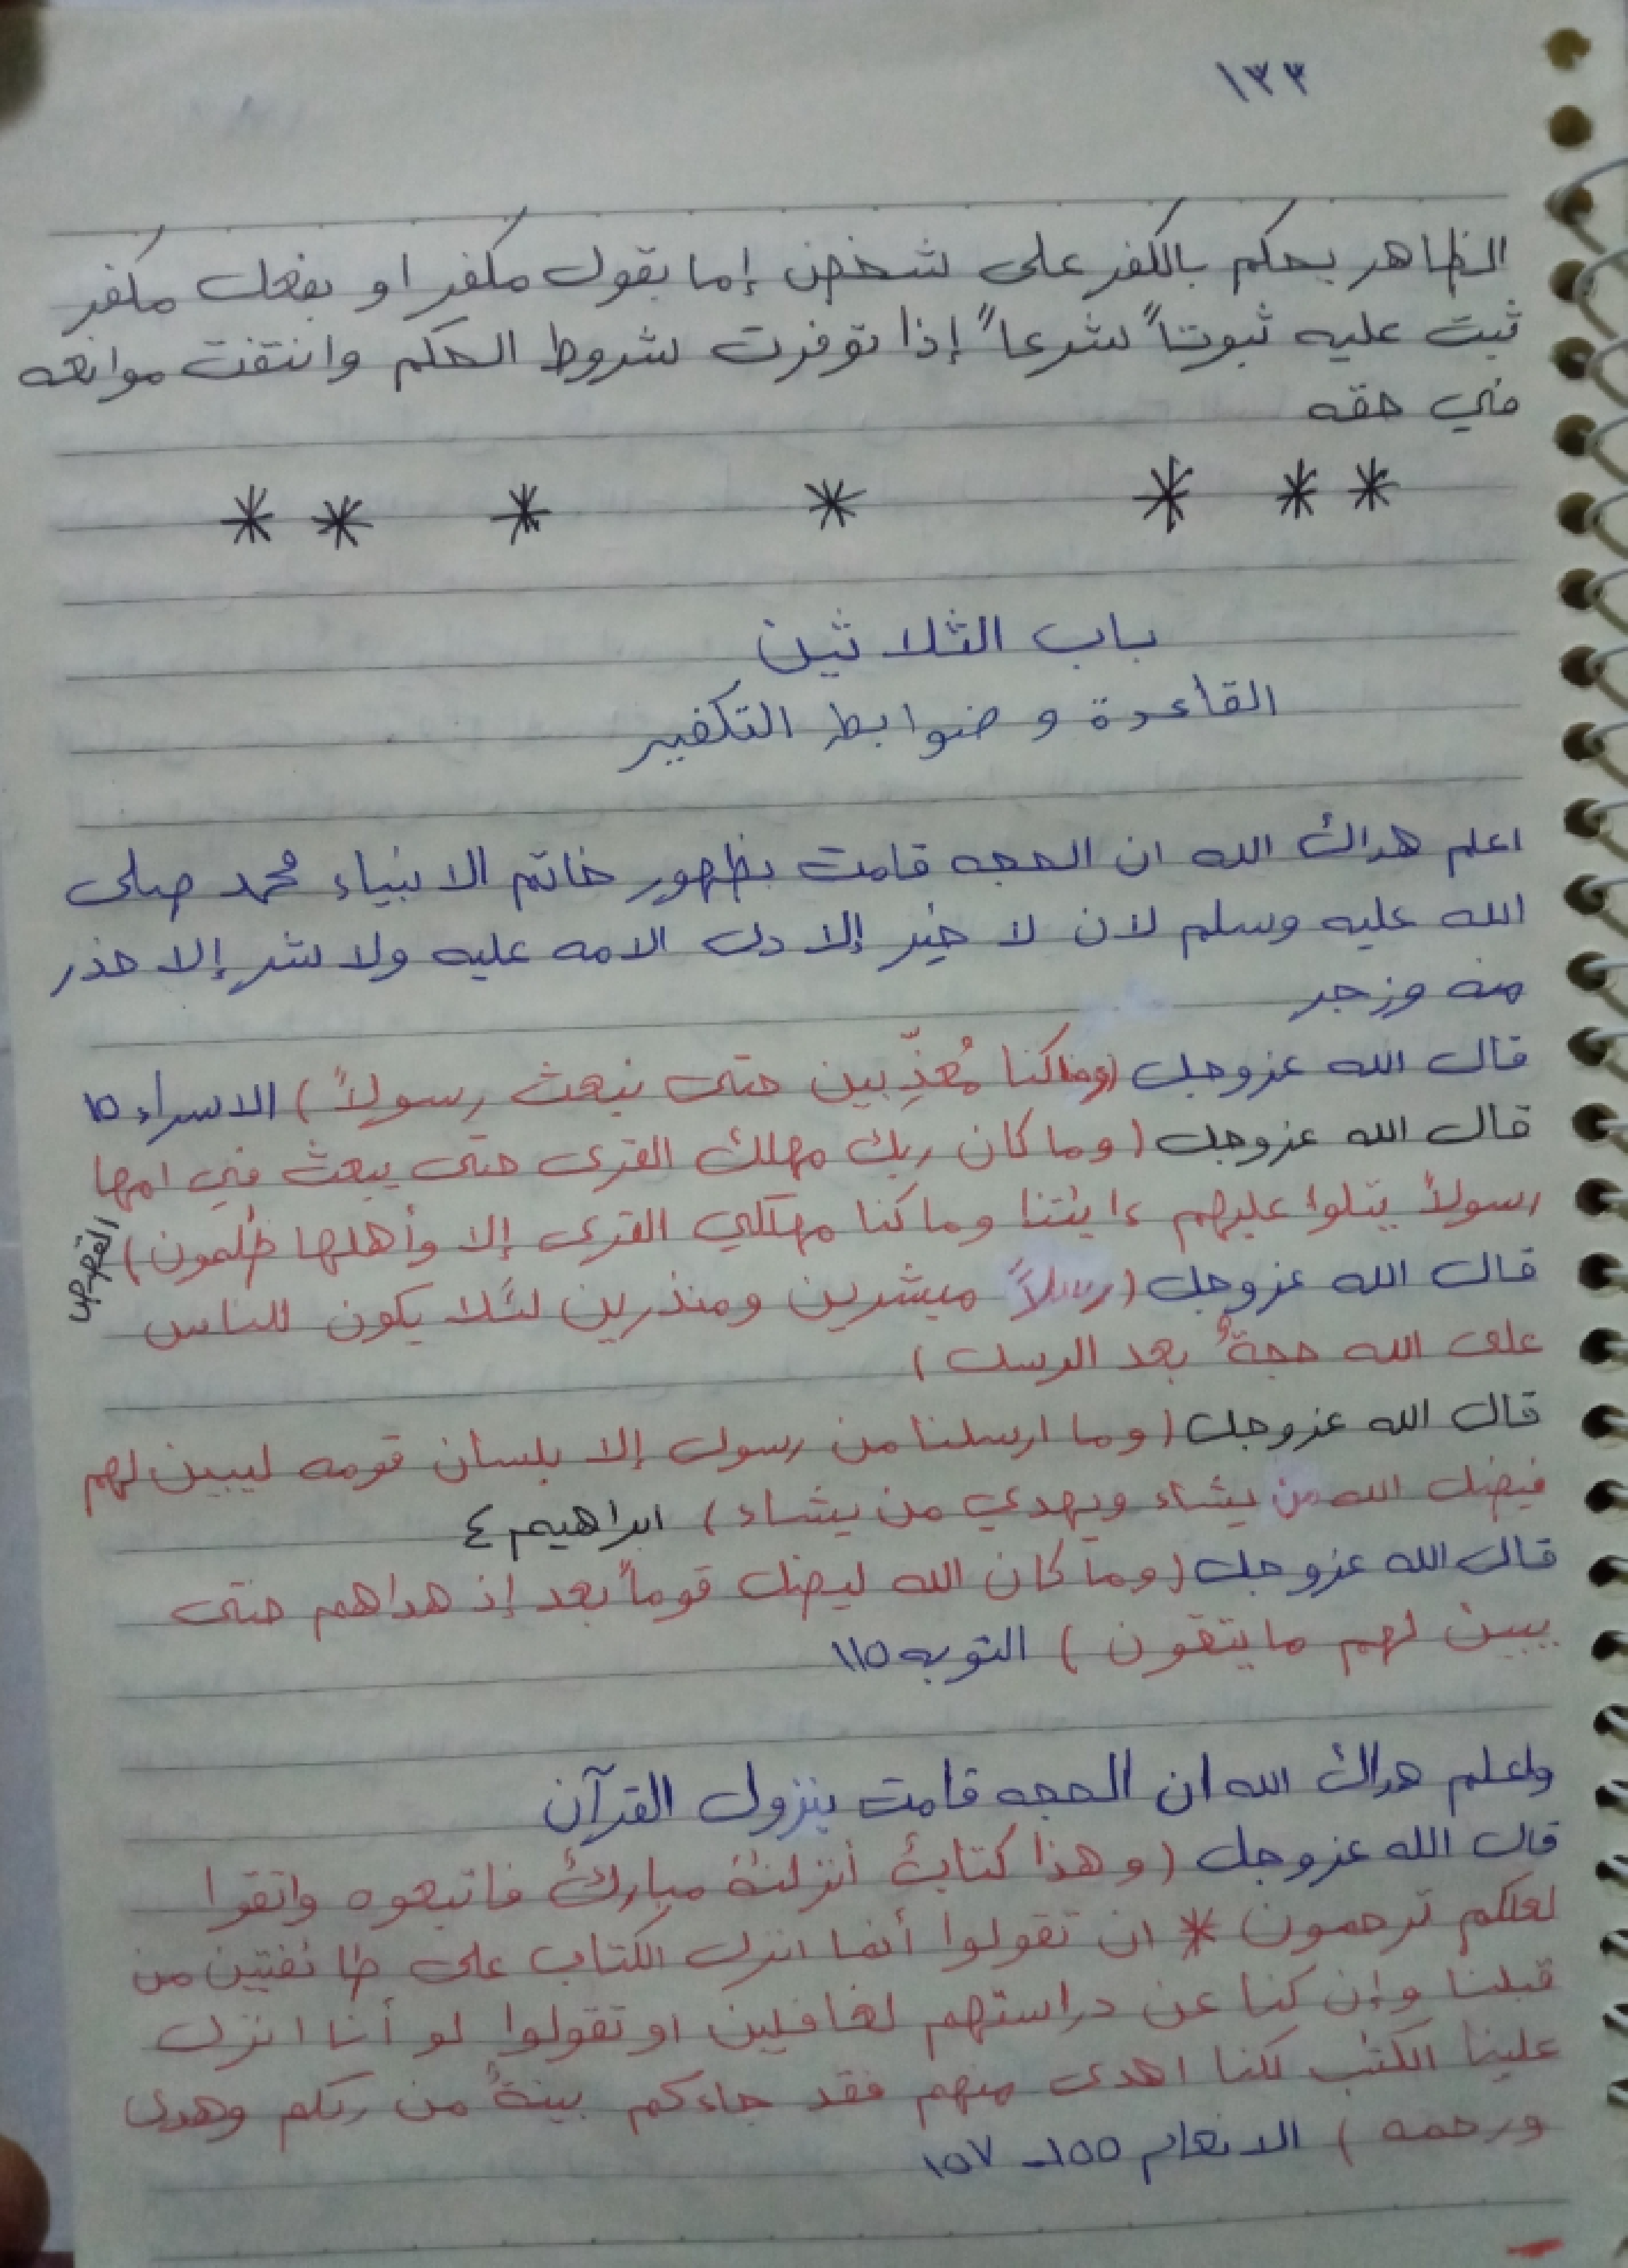 ١٣٣
الظاهر يحكم بالكفر على شخص إما بقول مكفر او بفعل مكفر
ثبت عليه ثبوتاً شرعاً إذا توفرت شروط الحكم وانتفت موانعه
في حقه
* * * * * * *
باب الثلاثين
القاعدة و ضوابط التكفير
اعلم هداك الله ان الحجه قامت بظهور خاتم الانبياء محمد صلى
الله عليه وسلم لان لا خير إلا دل الامه عليه ولا شر إلا حذر
منه وزجر
قال الله عزوجل (وماكنا مُعذِّبين حتى نبعث رسولاً) الاسراء ١٥
قال الله عزوجل (وما كان ربك مهلك القرى حتى يبعث في امها
رسولاً يتلوا عليهم ءايتنا وما كنا مهلكي القرى إلا وأهلها ظلمون) القصص
قال الله عزوجل (رسلاً مبشرين ومنذرين لئلا يكون للناس
على الله حجةٌ بعد الرسل)
قال الله عزوجل (وما ارسلنا من رسول إلا بلسان قومه ليبين لهم
فيضل الله من يشاء ويهدي من يشاء) ابراهيم ٤
قال الله عزوجل (وما كان الله ليضل قوماً بعد إذ هداهم حتى
يبين لهم ما يتقون) التوبه ١١٥
واعلم هداك الله ان الحجه قامت بنزول القرآن
قال الله عزوجل (وهذا كتابٌ أنزلنهُ مباركٌ فاتبعوه واتقوا
لعلكم ترحمون * ان تقولوا أنما انزل الكتاب على طائفتين من
قبلنا وإن كنا عن دراستهم لغافلين او تقولوا لو أنا انزل
علينا الكتب لكنا اهدى منهم فقد جاءكم بينةٌ من ربكم وهدى
ورحمه) الانعام ١٥٥ـ ١٥٧